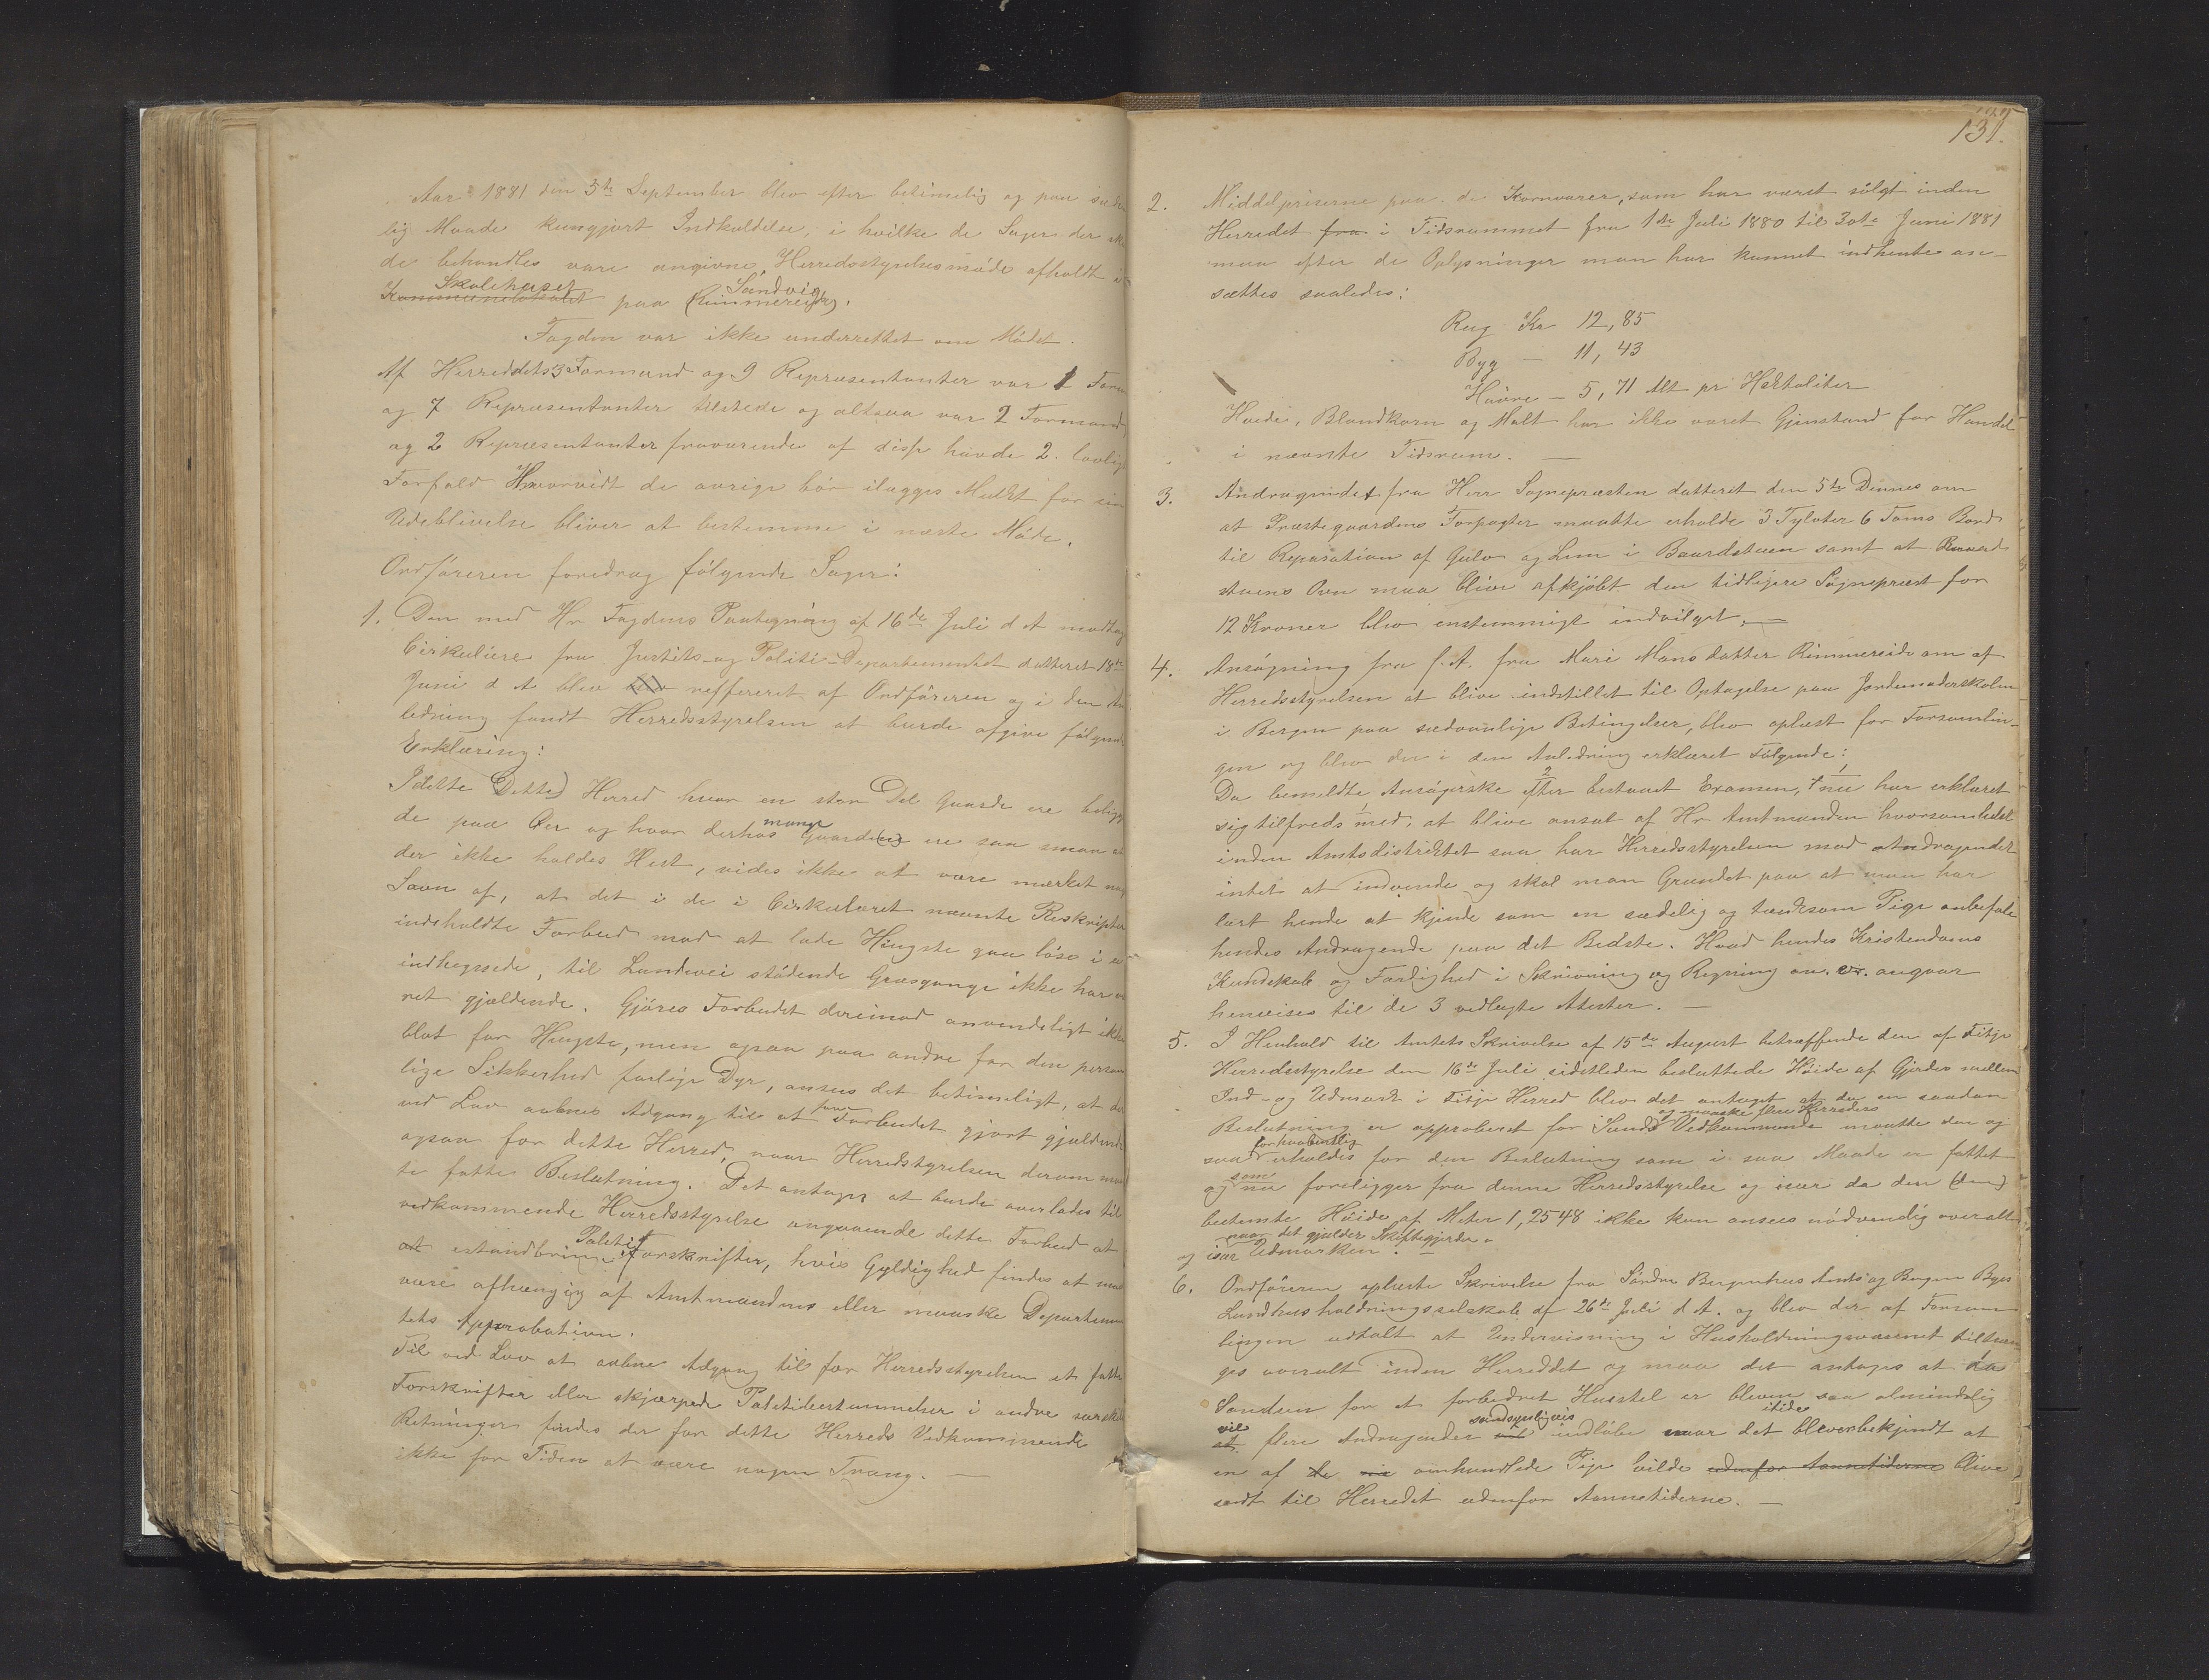 Aar 1881 den 5te September blev efter betimelig og paa sæde
lig Maade kungjort Indkaldelse, i hvilke de Sager der sk
de behandles vare angivne, Herredsstyrelsesmøde afholdt i
Skolehuset Sandvig
Kommunelokalet paa (Rimmereide).
Fogden var ikke underrettet om Mødet.
Af Herreddets 3 Formænd og 9 Repræsentanter var 1 Form
og 7 Repræsentanter tilstede og altsaa var 2 Formænd
og 2 Repræsentanter fraværende af disse havde 2 lovlig
Forfald Hvorvidt de øvrige bør ilægges Mulkt for sin
Udeblivelse bliver at bestemme i næste Møde.
Ordføreren foredrog følgende Sager:
1. Den med Hr Fogdens Paategning af 16de Juli d A modtag
Cirkulære fra Justits- og Politi-Departementet datteret 18de
Juni d A blev reffereret af Ordføreren og i den An
ledning fandt Herredsstyrelsen at burde afgive følgende
Erklæring:
I dette (Dette) Herred hvor en stor Del Gaarde ere beligg
de paa Øer og hvor derhos mange Gaard(ene) ere saa smaa at
der ikke holdes Hest, vides ikke at være mærket nog
Savn af, at det i de i Cirkulæret nævnte Reskripter
indeholdte Forbud mod at lade Hingste gaa løse i u-
indhegnede, til Landevei stødende Græsgange ikke har væ
ret gjældende. Gjøres Forbudet derimod anvendeligt ikke
blot for Hingste, men ogsaa paa andre for den person
lige Sikkerhed farlige Dyr, ansees det betimeligt, at der
ved Lov aabnes Adgang til at faa Forbudet gjort gjældende
ogsaa for dette Herred, naar Herredsstyrelsen derom maa
te fatte Beslutning. Det antages at burde overlades til
vedkommende Herredsstyrelse angaaende dette Forbud at
at istandbringe Politi Forskrifter, hvis Gyldighed findes at maa
være afhængig af Amtmandens eller maaske Departemen
tets Approbation.
Til ved Lov at aabne Adgang til for Herredsstyrelsen at fatte
Forskrifter eller skjærpede Politibestemmelser i andre særskilte
Retninger findes der for dette Herreds Vedkommende
ikke for Tiden at være nogen Trang. —
131.
2. Middelpriserne paa de Kornvarer, som har været sólgt inden
Herredet fra i Tidsrummet fra 1ste Juli 1880 til 30te Juni 1881
maa efter de Oplysninger man har kunnet indhente an-
sættes saaledes:
Rug Kr 12,85
Byg — 11,43
Havre — 5,71 Alt pr Hektoliter
Hvede, Blandkorn og Malt har ikke været Gjenstand for Handel
i nævnte Tidsrum. —
3. Andragendet fra Herr Sognepræsten datteret den 5te Dennes om
at Præstegaardens Forpagter maatte erholde 3 Tylvter 6 Toms Bord
til Reparation af Gulv og Lem i Baardstuen samt at Baard
stuens Ovn maa blive afkjøbt den tidligere Sognepræst for
12 Kroner blev enstemmigt indvilget. —
4. Ansøgning fra f. A. fra Mari Monsdatter Rimmereide om af
Herredsstyrelsen at blive indstillet til Optagelse paa Jordemoderskolen
i Bergen paa sædvanlige Betingelser, blev oplæst for Forsamlin-
gen og blev der i den Anledning erklæret Følgende:
Da bemeldte Ansøgerske efter bestaaet Examen, nu har erklæret
sig tilfreds med, at blive ansat af Hr Amtmanden hvorsomhelst
inden Amtsdistriktet saa har Herredsstyrelsen mod Andragendet
intet at indvende og skal man Grundet paa at man har
lært hende at kjende som en sædelig og tænksom Pige anbefale
hendes Andragende paa det Bedste. Hvad hendes Kristendoms
Kundskab og Færdighed i Skrivning og Regning an. er. angaar
henvises til de 3 vedlagte Atester. —
5. I Henhold til Amtets Skrivelse af 15de August betræffende den af Fitje
Herredsstyrelse den 16de Juli sidstleden besluttede Høide af Gjerder mellem
Ind- og Udmark i Fitje Herred blev det antaget at da en saadan
og maaske flere Herreders
Beslutning er approberet for Sunds Vedkommende maatte den og
saa forhaabentlig erholdes for den Beslutning som i saa Maade er fattet
og som nu foreligger fra denne Herredsstyrelse og især da den (den)
bestemte Høide af Meter 1,2548 ikke kan ansees nødvendig overalt
naar det gjelder Skiftegjerder
og især Udmarken. —
6. Ordføreren oplæste Skrivelse fra Søndre Bergenhus Amts og Bergens Byes
Landhusholdningsselskab af 26de Juli d A. og blev der af Forsam
lingen udtalt at Undervisning i Husholdningsvæsenet tiltræn
ges overalt inden Herreddet og maa det antages at da
Sandsen for et forbedret Husstel er bleven saa almindelig
vil sandsynligvis itide
at flere Andragender vil indløbe naar det blever bekjendt at
en af de omhandlede Pige vilde udenfor Aannetiderne blive
sendt til Herredet udenfor Aannetiderne. —